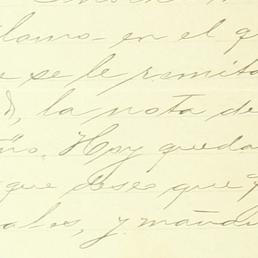 en el q
e se le remita
, la nota de
ño. Hoy queda
que deseo que
ales, y mand